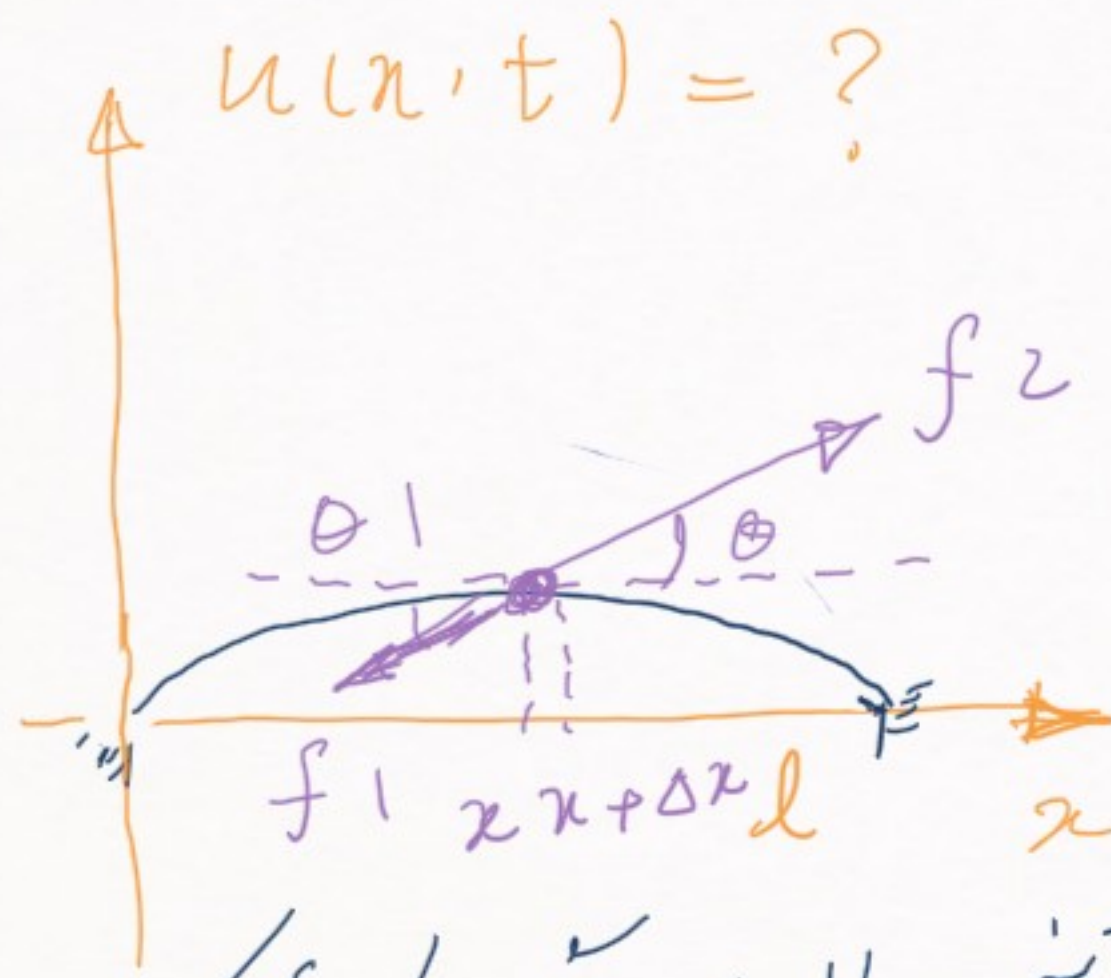 u(x,t) = ?
f2
θ1 θ
f1 x x+Δx l x